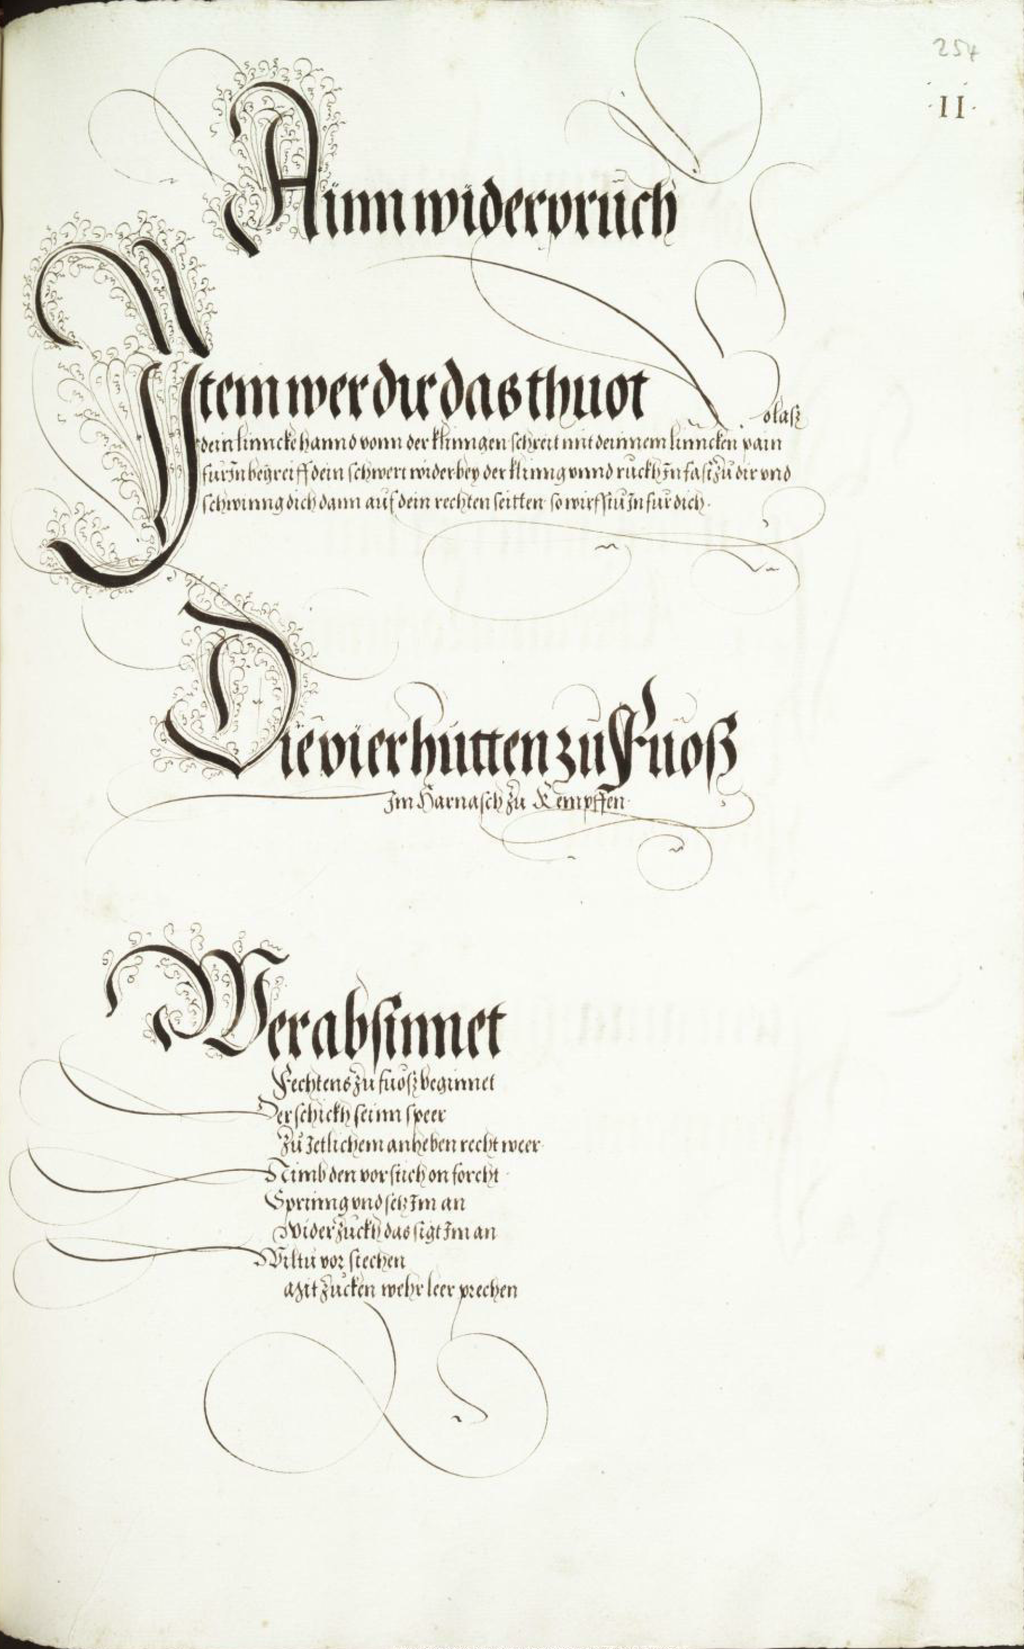 254
·II·
Ainn widerpruch
Item wer dir das thuot
So lasz
dein linncke hannd vonn der klinngen schreit mit deinnem linncken pain
fur In begreiff dein schwert wider bey der klinng vnnd ruckh In fast zu dir vnd
schwinng dich dann auf dein rechten seitten so wirfstu In fur dich.
Die vier hutten zu Fuosz
Im Harnasch zu Kempffen.
Wer absinnet
Fechtens zu fuosz beginnet
Der schickh seinn speer
Zu Ietlichem anheben recht weer
Nimb den vor stich on forcht
Sprinng vnd setz Im an
Wider zuckh das sigt Im an
Wiltu vor stechen
Mit zucken wehr leer prechen